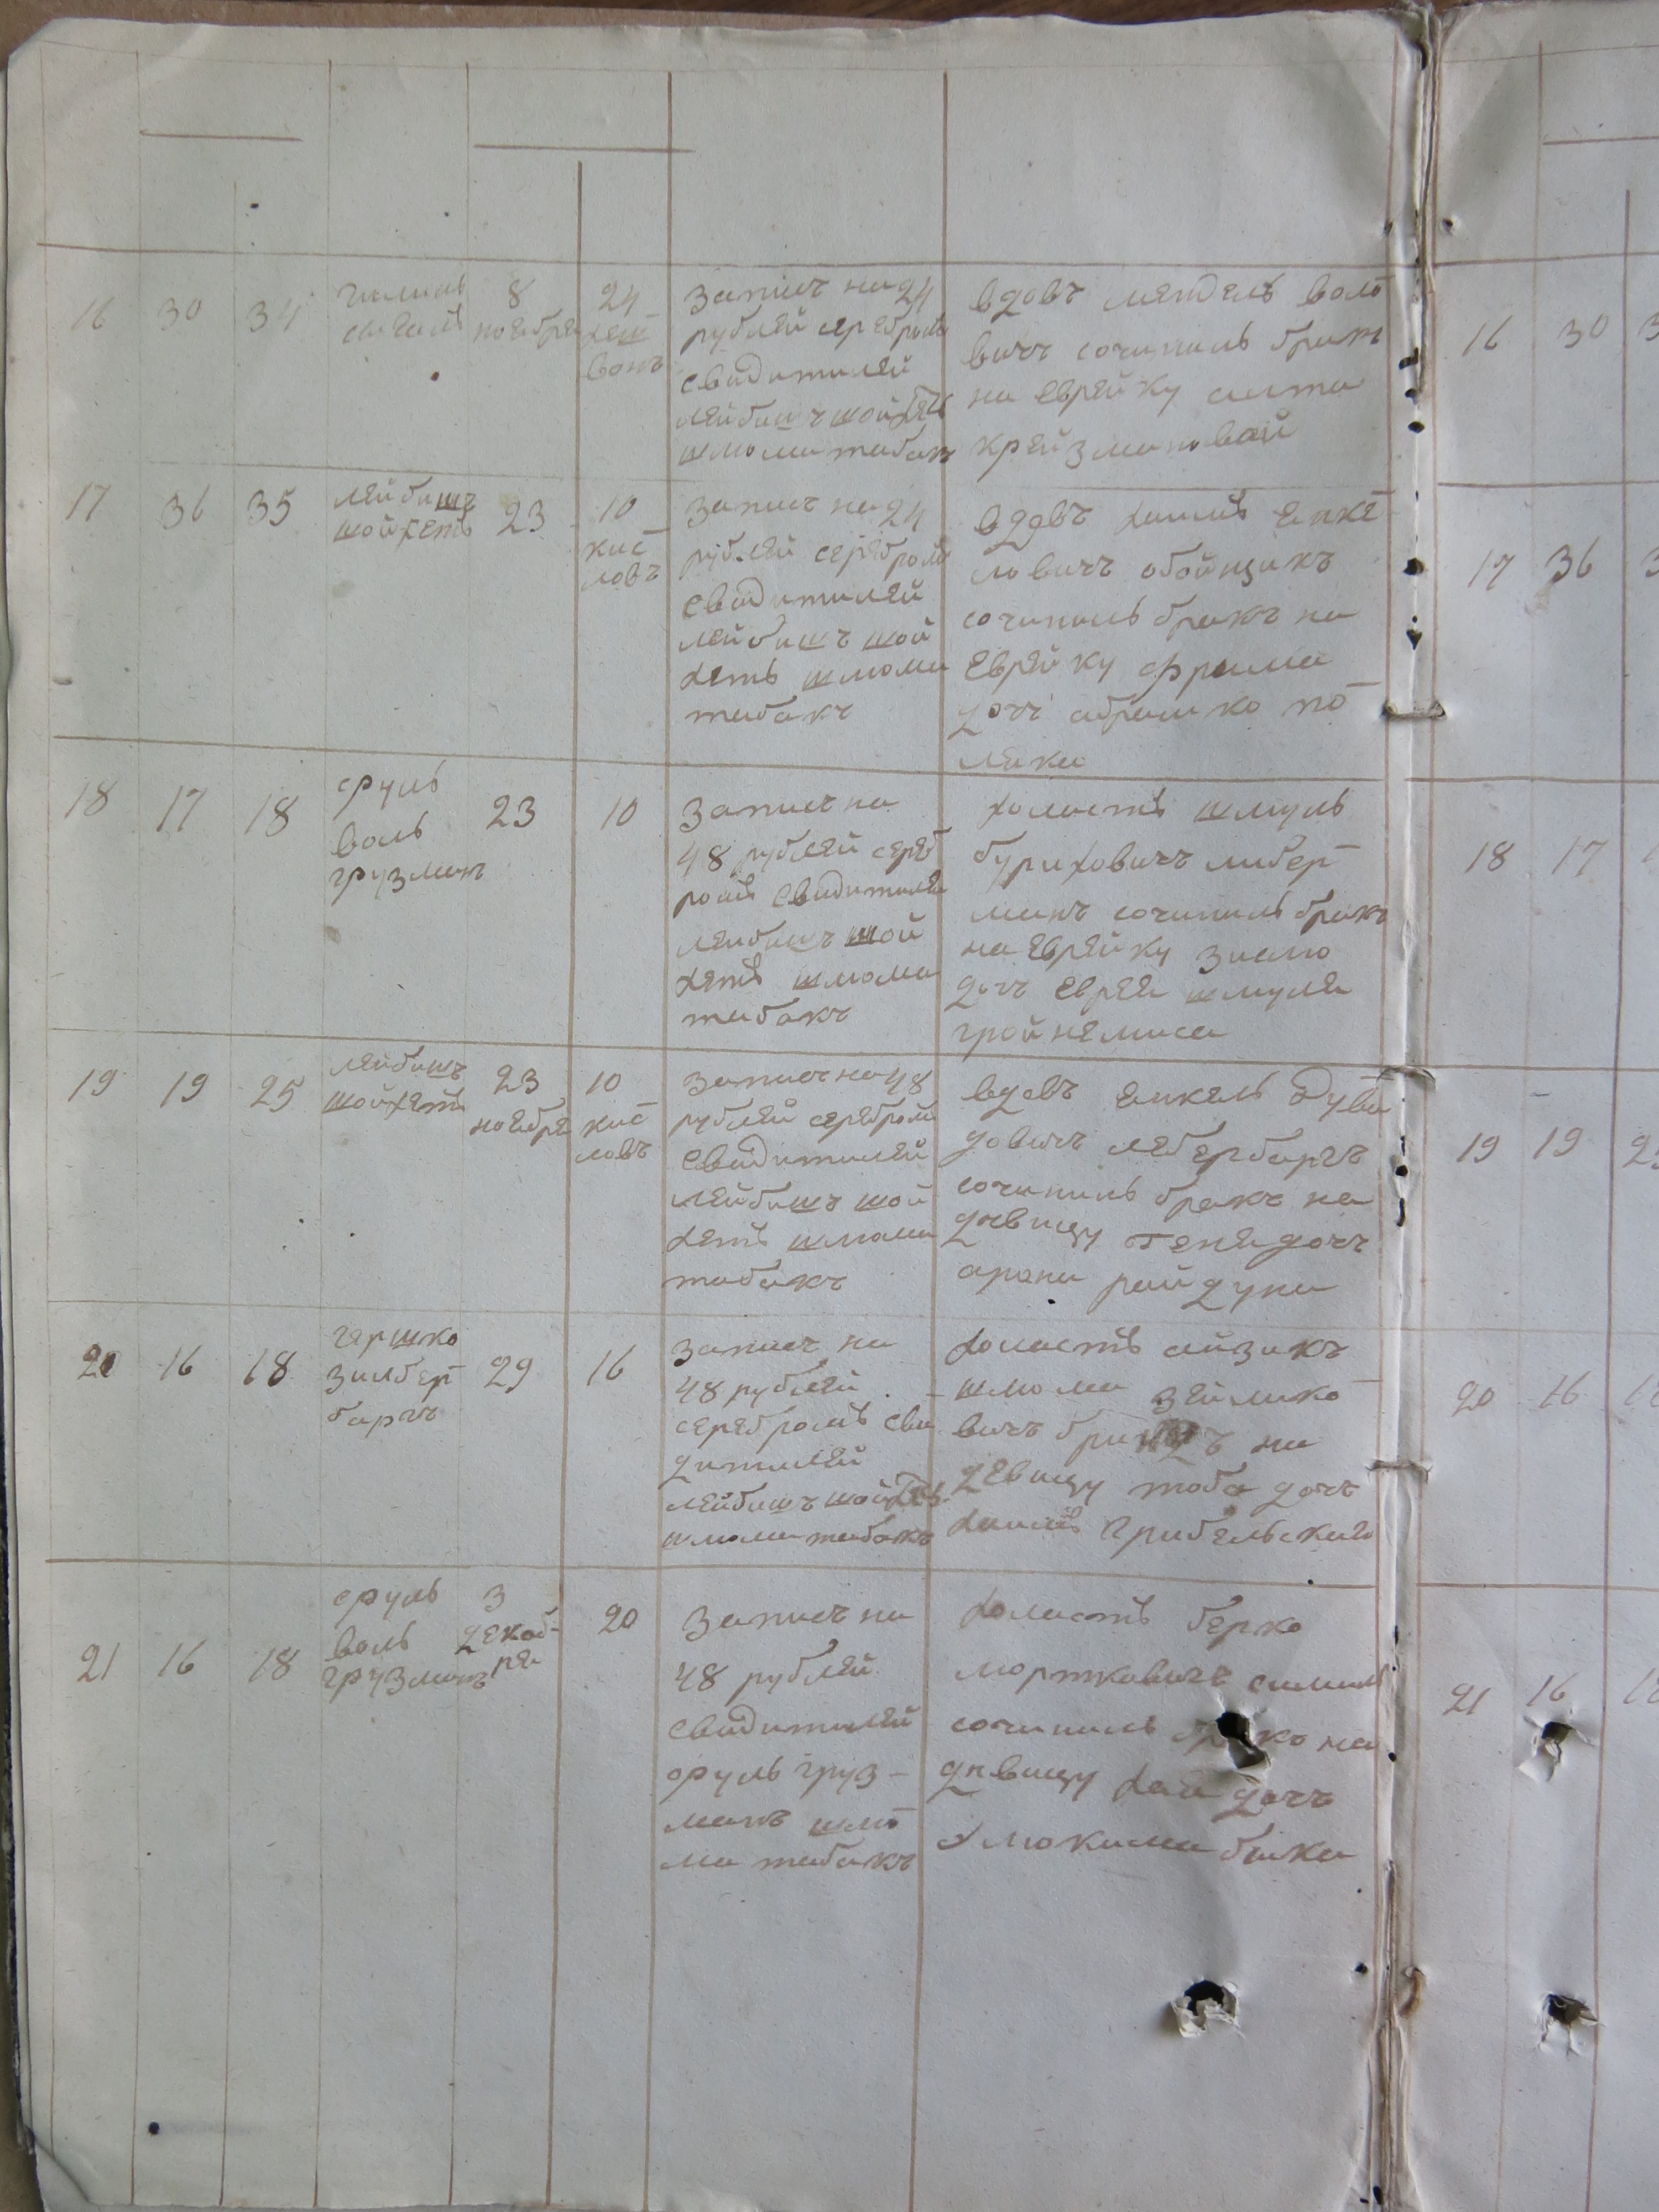 16 30 34
8
ноября
24
хеш
вонъ
запись на 24
рублей серебромъ
свидителей
лейбишъ шойхетъ
шлома табакъ
вдовъ мендель воло
вичъ сочинилъ бракъ
на еврейку
крейзмановай
17 36 35
лейбишъ
шойхетъ
23
10
кис
ловъ
запись на 24
рублей серебромъ
свидителей
лейбишъ шой
хетъ шлома
табакъ
вдовъ хаимъ енке
ловичъ обойщикъ
сочинилъ бракъ на
еврейку фрима
дочъ абрамко по
ляка
18 17 18
сруль
воль
грузманъ
23
10
запись на
48 рублей сереб
ромъ свидителей
лейбишъ шой
хетъ шлома
табакъ
холастъ шмуль
буриховичъ либер
манъ сочинилъ бракъ
на еврейку зислю
дочъ еврея шмуля
гройнемиса
19 19 25
лейбишъ
шойхетъ
23
ноября
10
кис
ловъ
запись на 48
рублей серебромъ
свидителей
лейбишъ шой
хетъ шлома
табакъ
вдовъ енкель дуви
довичъ лебербаргъ
сочинилъ бракъ на
дѣвицу геня дочъ
арона райдуна
20 16 18
гершко
зилбер
баргъ
29
16
запись на
48 рублей
серебромъ сви
дителей
лейбишъ шойхетъ
шлома табакъ
холастъ айзикъ
шлома зейлико
вичъ на
девицу тоба дочъ
хаимъ грибельскаго
21 16 18
сруль
воль
грузманъ
3
декаб-
ря
20
запись на
48 рублей
свидителей
сруль груз-
манъ шло
ма табакъ
холастъ берко
мортковичъ
сочинилъ на
дѣвицу хая дочъ
бика
16 30 3
17 36 3
18 17
19 19 25
20 16 18
21 16 18